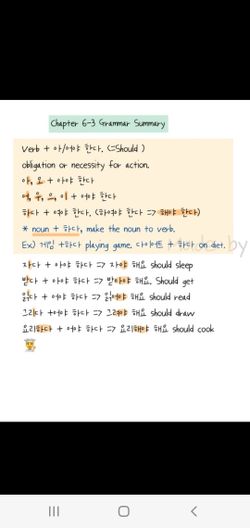 Chapter 6-3 Grammar Summary
Verb + 아/어야 한다. (=Should)
obligation or necessity for action.
아, 오 + 아야 한다
어, 우, 으, 이 + 어야 한다
하다 + 여야 한다. (하여야 한다 => 해야 한다)
* noun + 하다, make the noun to verb.
Ex) 게임 +하다 playing game. 다이어트 + 하다 on diet.
자다 + 아야 하다 => 자야 해요 should sleep
받다 + 아야 하다 => 받아야 해요. Should get
읽다 + 어야 하다 => 읽어야 해요 should read
그리다 +어야 하다 => 그려야 해요 should draw
요리하다 + 여야 하다 => 요리해야 해요 should cook